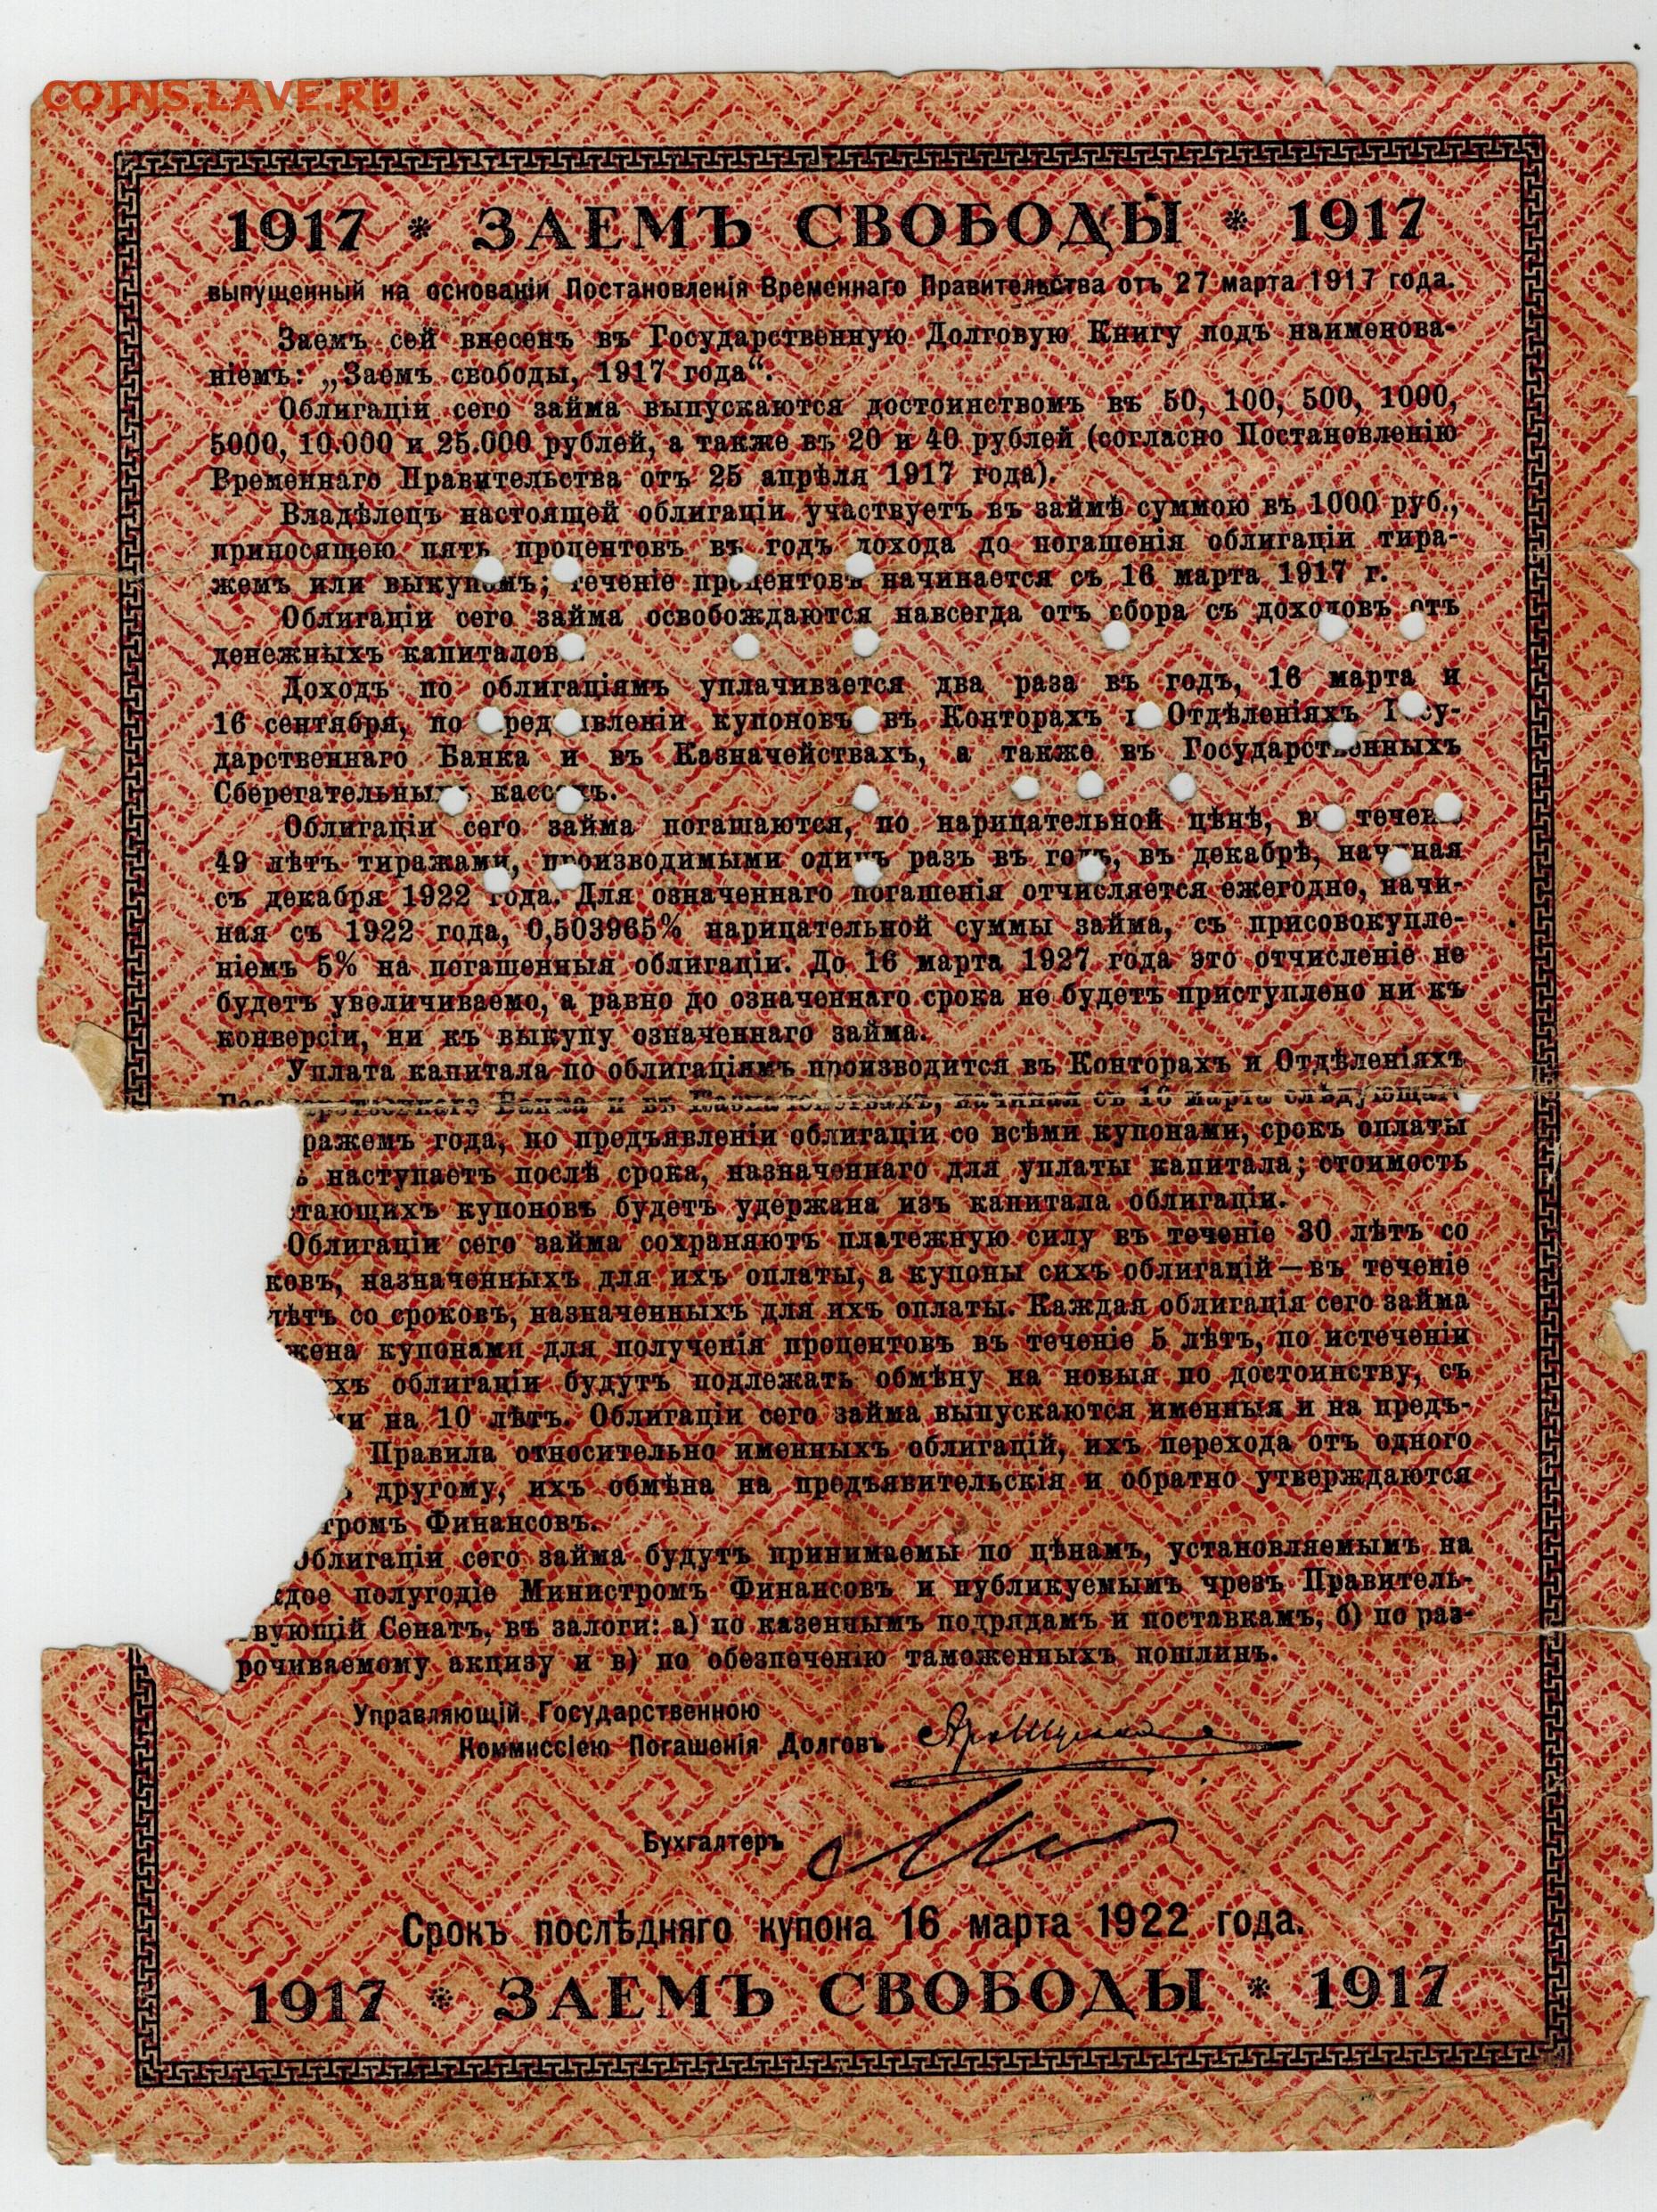 COINS.LAVE.RU
1917 * ЗАЕМЪ СВОБОДЫ * 1917
выпущенный на основаніи Постановленія Временнаго Правительства отъ 27 марта 1917 года.
Заемъ сей внесенъ въ Государственную Долговую Книгу подъ наименова-
ніемъ: „Заемъ свободы, 1917 года“.
Облигаціи сего займа выпускаются достоинствомъ въ 50, 100, 500, 1000,
5000, 10.000 и 25.000 рублей, а также въ 20 и 40 рублей (согласно Постановленію
Временнаго Правительства отъ 25 апрѣля 1917 года).
Владѣлецъ настоящей облигаціи участвуетъ въ займѣ суммою въ 1000 руб.,
приносящею пять процентовъ въ годъ дохода до погашенія облигаціи тира-
жемъ или выкупомъ; теченіе процентовъ начинается съ 16 марта 1917 г.
Облигаціи сего займа освобождаются навсегда отъ сбора съ доходовъ отъ
денежныхъ капиталов
Доходъ по облигаціямъ уплачивается два раза въ годъ, 16 марта и
16 сентября, по ред явленіи купоновъ въ Конторахъ Отдѣленіяхъ Госу-
дарственнаго Банка и въ Казначействахъ, а также въ Государственныхъ
Сберегательны кассахъ.
Облигаціи сего займа погашаются, по нарицательной цѣнѣ, в течен
49 лѣтъ тиражами, производимыми одинъ разъ въ годъ, въ декабрѣ, начиная
съ декабря 1922 года. Для означеннаго погашенія отчисляется ежегодно, начи-
ная съ 1922 года, 0,503965% нарицательной суммы займа, съ присовокупле-
ніемъ 5% на погашенныя облигаціи. До 16 марта 1927 года это отчисленіе не
будетъ увеличиваемо, а равно до означеннаго срока не будетъ приступлено ни къ
конверсіи, ни къ выкупу означеннаго займа.
Уплата капитала по облигаціямъ производится въ Конторахъ и Отдѣленіяхъ
Государственнаго Банка и въ Казначействахъ, начиная съ 16 марта слѣдующаго
ражемъ года, по предъявленіи облигаціи со всѣми купонами, срокъ оплаты
ъ наступаетъ послѣ срока, назначеннаго для уплаты капитала; стоимость
тающихъ купоновъ будетъ удержана изъ капитала облигаціи.
Облигаціи сего займа сохраняютъ платежную силу въ теченіе 30 лѣтъ со
ковъ, назначенныхъ для ихъ оплаты, а купоны сихъ облигацій—въ теченіе
лѣтъ со сроковъ, назначенныхъ для ихъ оплаты. Каждая облигація сего займа
жена купонами для полученія процентовъ въ теченіе 5 лѣтъ, по истеченіи
хъ облигаціи будутъ подлежать обмѣну на новыя по достоинству, съ
ми на 10 лѣтъ. Облигаціи сего займа выпускаются именныя и на предъ-
Правила относительно именныхъ облигацій, ихъ перехода отъ одного
ъ другому, ихъ обмѣна на предъявительскія и обратно утверждаются
тромъ Финансовъ.
Облигаціи сего займа будутъ принимаемы по цѣнамъ, установляемымъ на
ждое полугодіе Министромъ Финансовъ и публикуемымъ чрезъ Правитель-
вующій Сенатъ, въ залоги: а) по казеннымъ подрядамъ и поставкамъ, б) по раз-
рочиваемому акцизу и в) по обезпеченію таможенныхъ пошлинъ.
Управляющій Государственною
Коммиссіею Погашенія Долговъ
Бухгалтеръ
Срокъ послѣдняго купона 16 марта 1922 года.
1917 * ЗАЕМЪ СВОБОДЫ * 1917